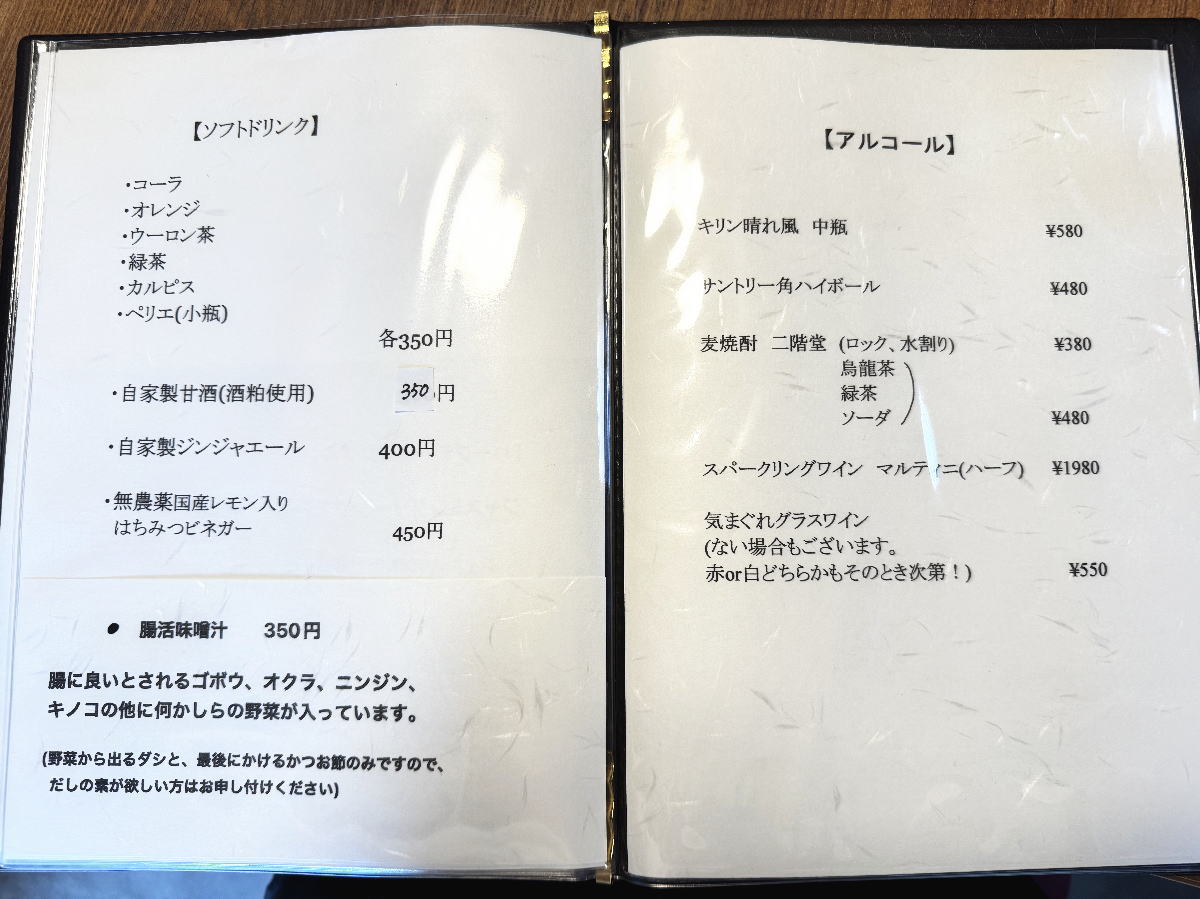 【ソフトドリンク】
・コーラ
・オレンジ
・ウーロン茶
・緑茶
・カルピス
・ペリエ(小瓶)
各350円
・自家製甘酒(酒粕使用) 350円
・自家製ジンジャエール 400円
・無農薬国産レモン入り
はちみつビネガー 450円
● 腸活味噌汁 350円
腸に良いとされるゴボウ、オクラ、ニンジン、
キノコの他に何かしらの野菜が入っています。
(野菜から出るダシと、最後にかけるかつお節のみですので、
だしの素が欲しい方はお申し付けください)
【アルコール】
キリン晴れ風 中瓶 ¥580
サントリー角ハイボール ¥480
麦焼酎 二階堂 (ロック、水割り) ¥380
烏龍茶
緑茶
ソーダ ¥480
スパークリングワイン マルティニ(ハーフ) ¥1980
気まぐれグラスワイン
(ない場合もございます。
赤or白どちらかもそのとき次第！) ¥550